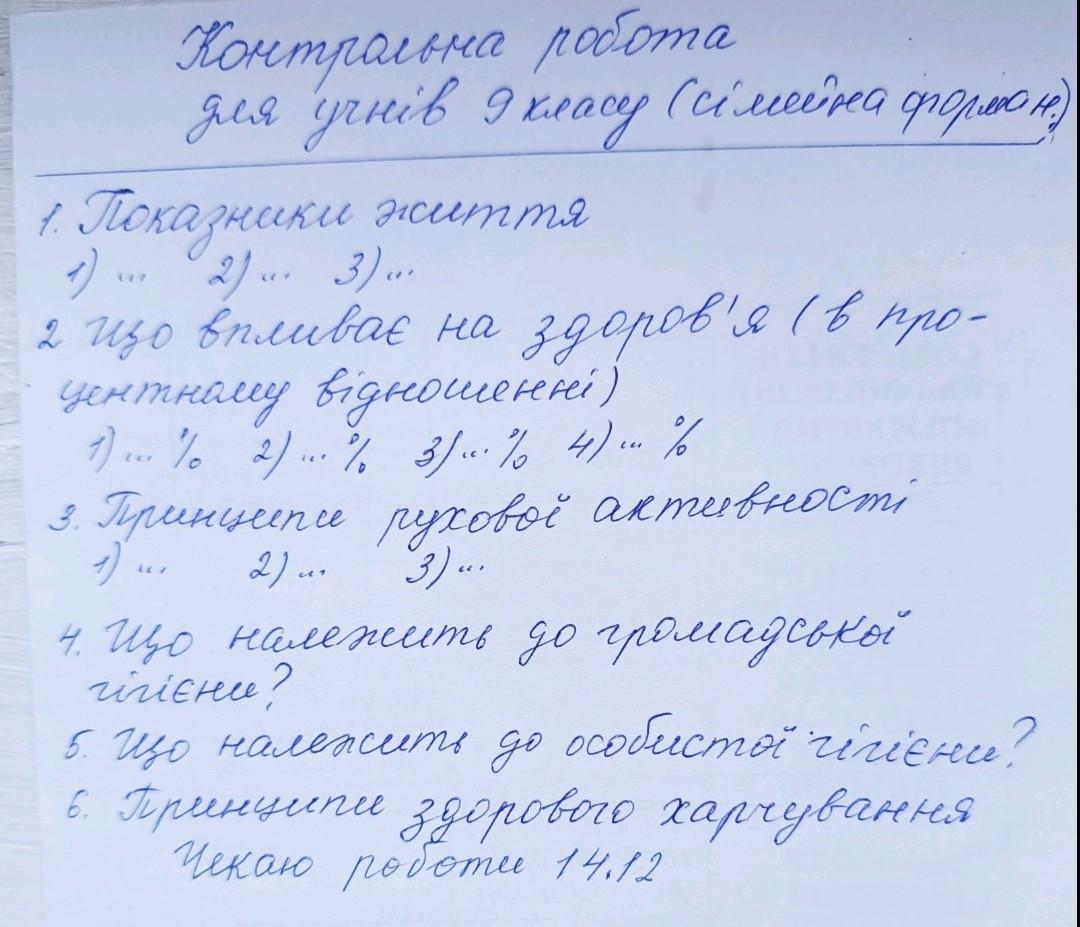 Контрольна робота
для учнів 9 класу (сімейна форма н.)
1. Показники життя
1) ... 2) ... 3) ...
2 Що впливає на здоров'я (в про-
центному відношенні)
1) ... % 2) ... % 3) ... % 4) ... %
3. Принципи рухової активності
1) ... 2) ... 3) ...
4. Що належить до громадської
гігієни?
5. Що належить до особистої гігієни?
6. Принципи здорового харчування
Чекаю роботи 14.12